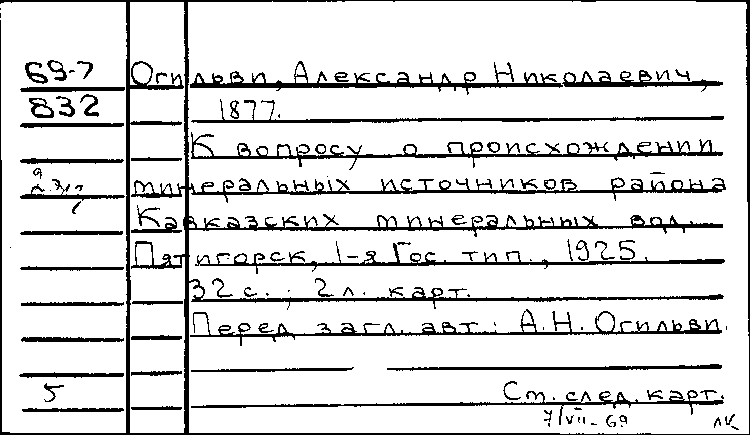 69-7 Огильви, Александр Николаевич,
832 1877.
К вопросу о происхождении
минеральных источников района
Кавказских минеральных вод.
Пятигорск, 1-я Гос. тип., 1925.
32 с.; 2 л. карт.
Перед загл. авт.: А.Н. Огильви.
5 См. след. карт.
7/VII-69 ЛК